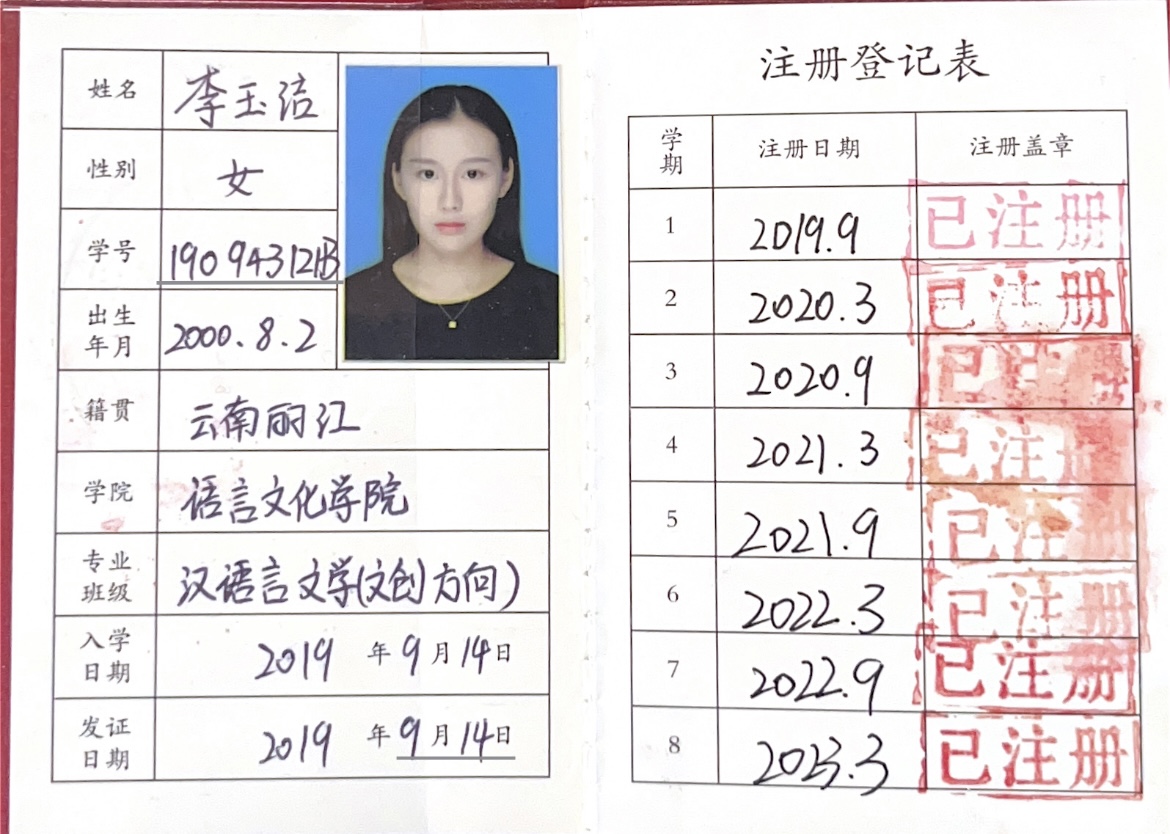 姓名 李玉洁
性别 女
学号
出生年月 2000.8.2
籍贯 云南丽江
学院 语言文化学院
专业班级 汉语言文学(文创方向)
入学日期 2019 年 9 月 14 日
发证日期 2019 年 9 月 14 日
注册登记表
学期 注册日期 注册盖章
1 2019.9 已注册
2 2020.3 已注册
3 2020.9 已
4 2021.3 已注
5 2021.9 已注册
6 2022.3 已注册
7 2022.9 已注册
8 2023.3 已注册